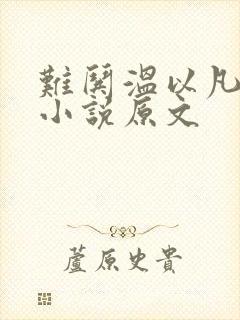 難鬨溫以凡
小說原文
蘆原史貴